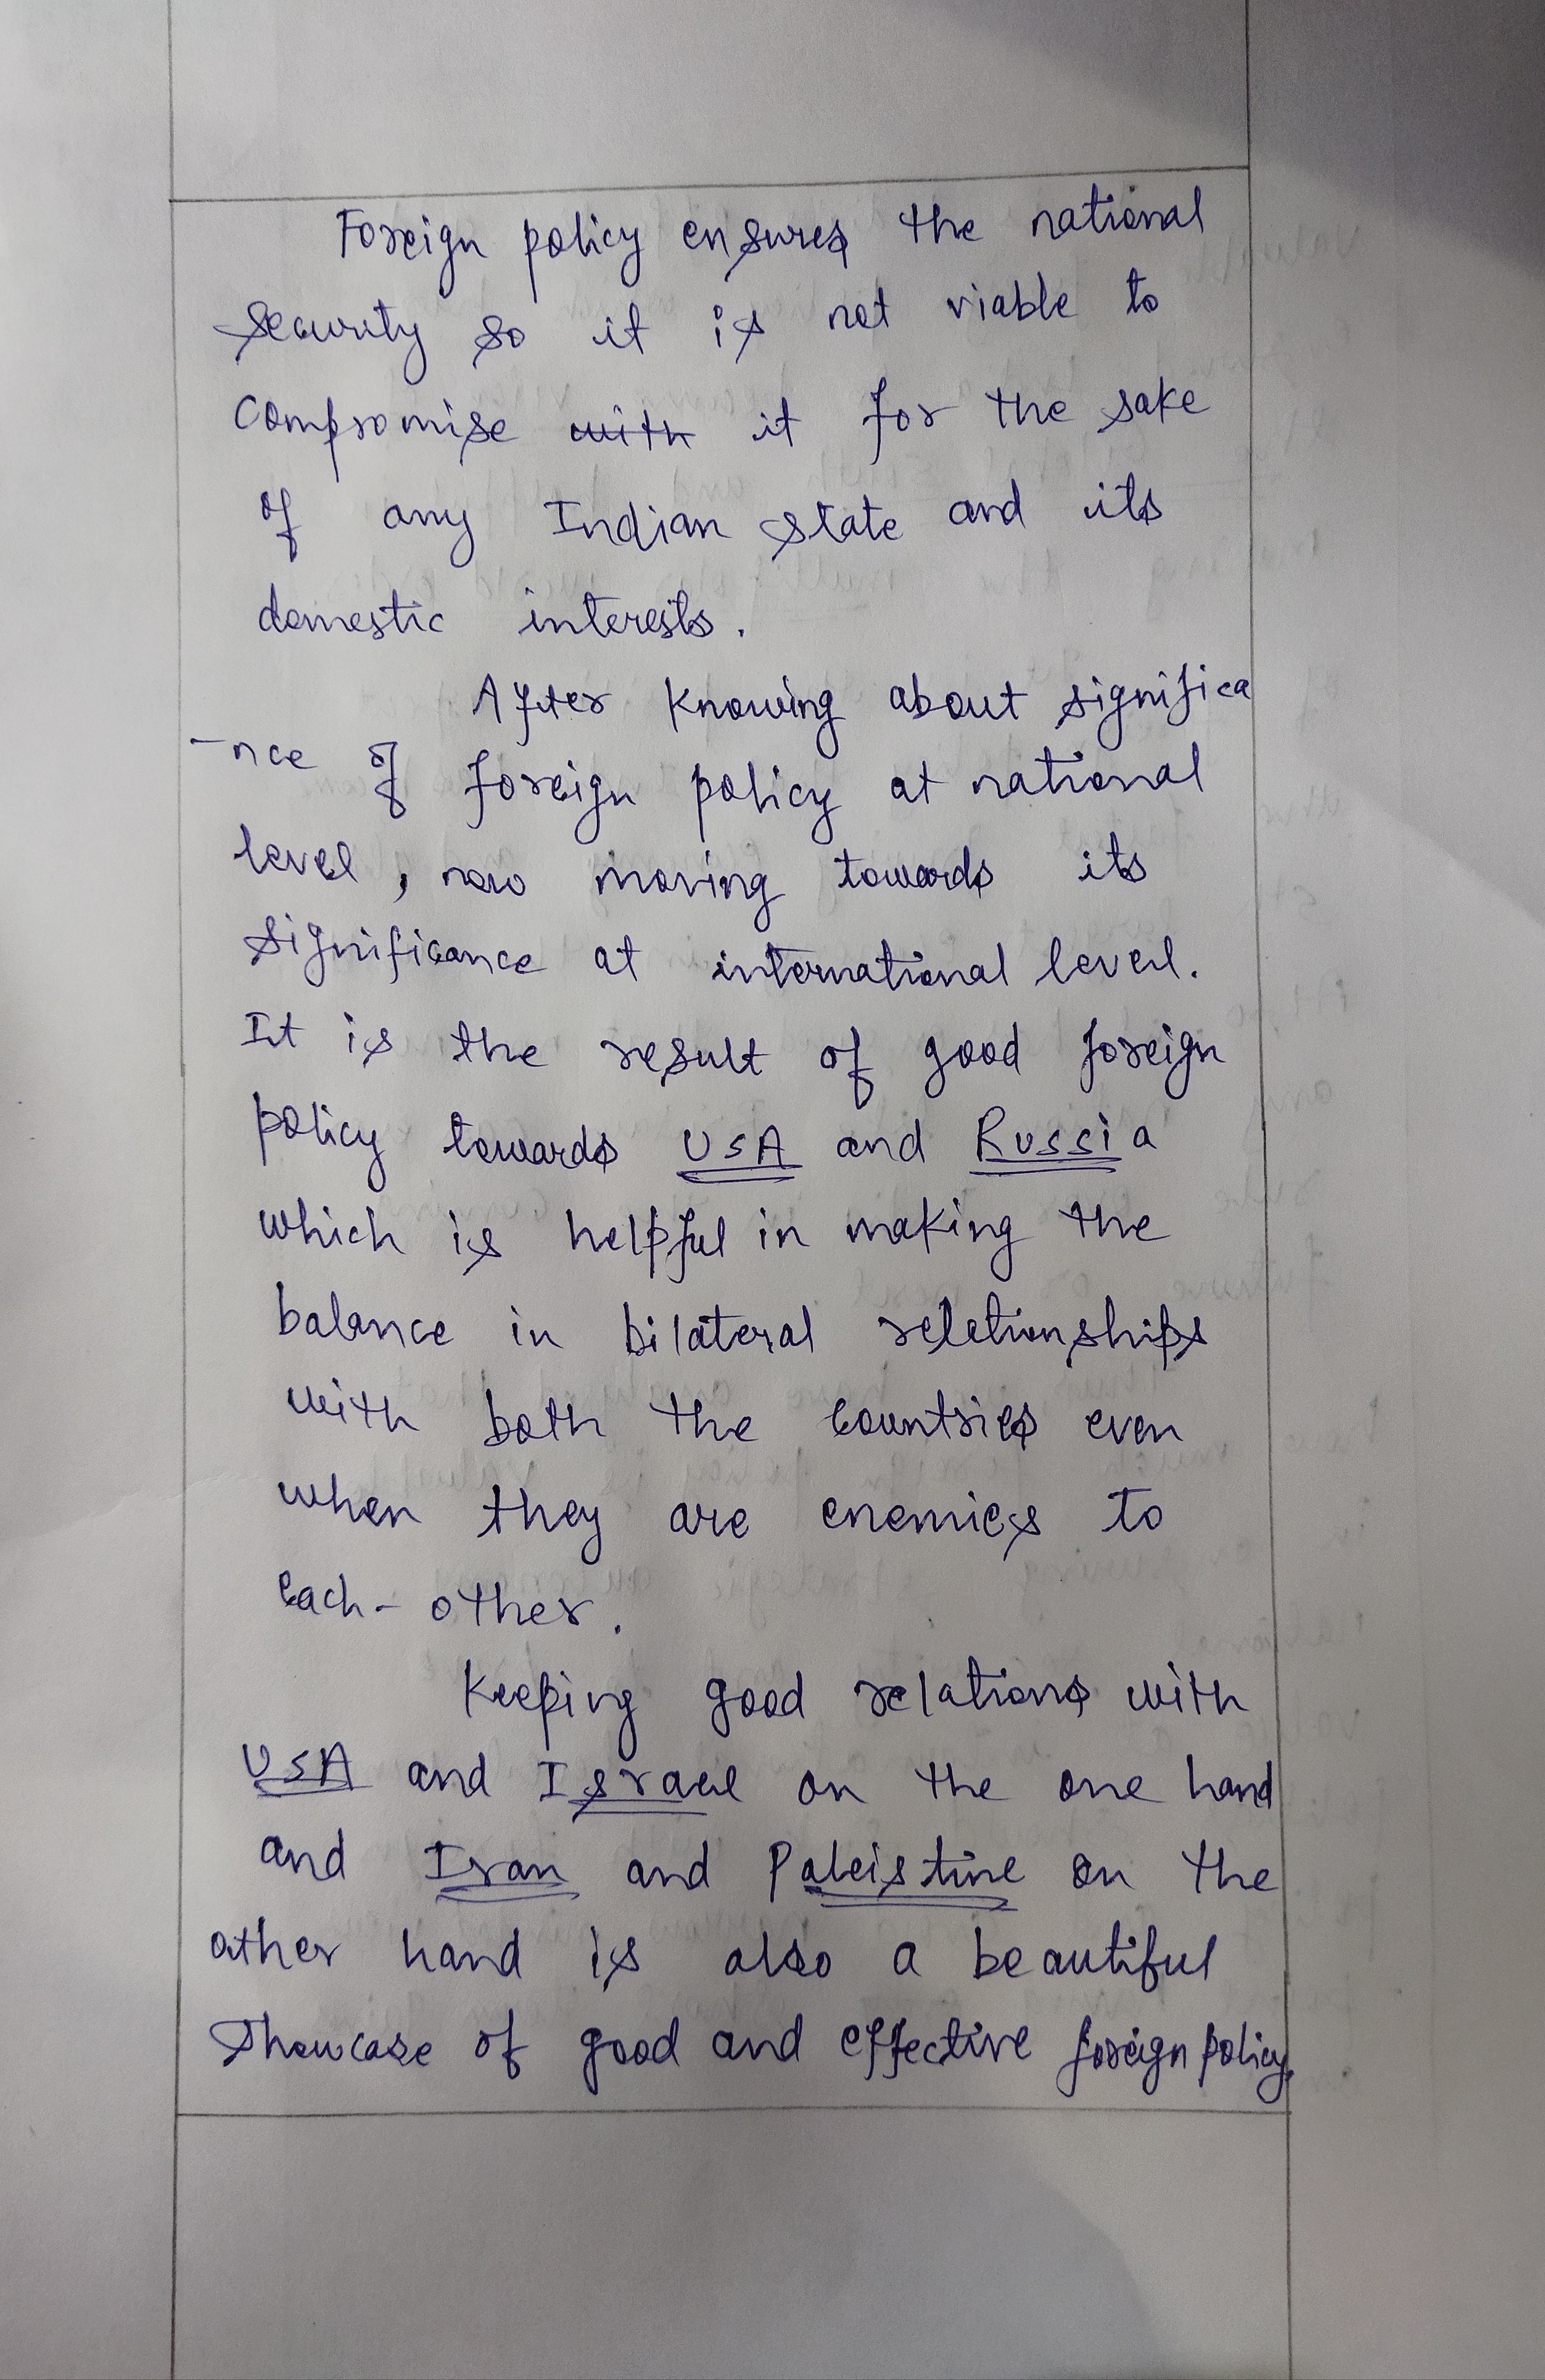 Foreign policy ensures the national
security so it is not viable to
compromise with it for the sake
of any Indian state and its
domestic interests.
After knowing about significa
-nce of foreign policy at national
level, now moving towards its
significance at international level.
It is the result of good foreign
policy towards USA and Russia
which is helpful in making the
balance in bilateral reletionships
with both the countries even
when they are enemies to
each-other.
Keeping good relations with
USA and Israel on the one hand
and Iran and Paleistine on the
other hand is also a beautiful
showcase of good and effective foreign policy.